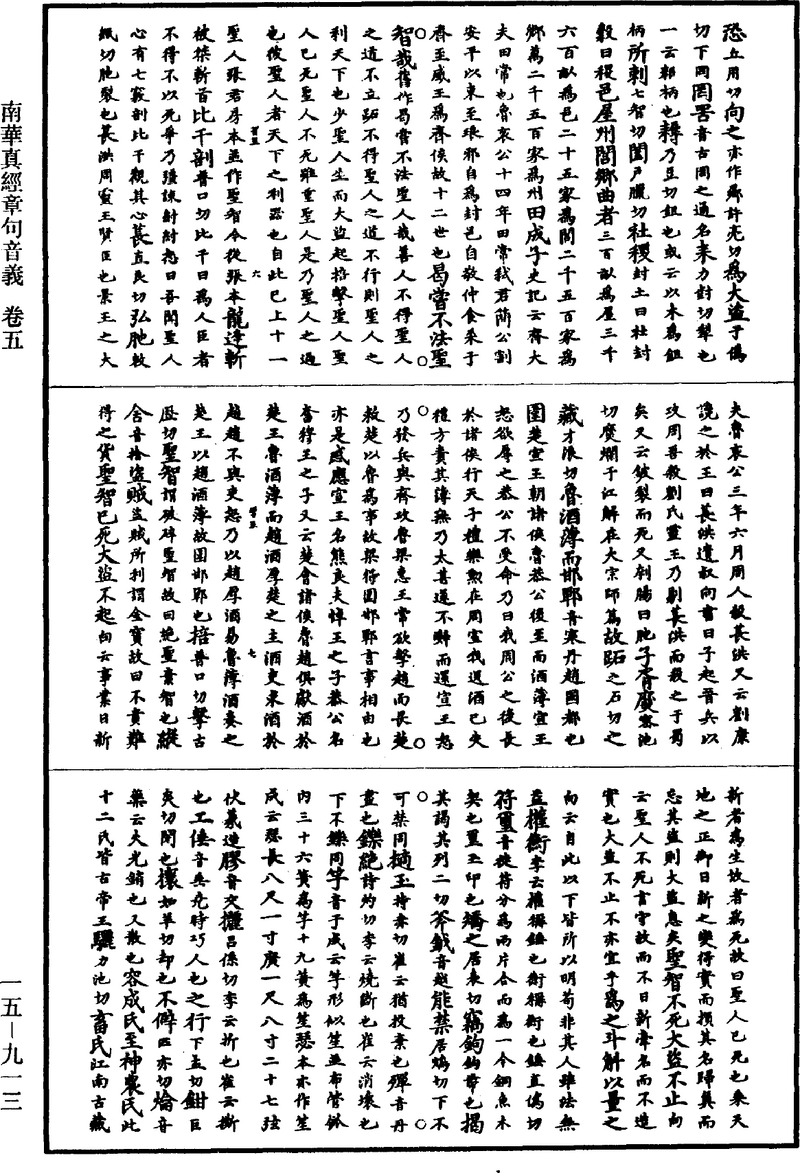 南華真經章句音義　卷五
恐丘用切向之亦作嚮許亮切為大盜于偽
切下同罔罟音古罔之通名耒力對切犂也
一云耜柄也耨乃豆切鉏也或云以木為鉏
柄所刺七智切闔戶臘切社稷封土曰社封
穀曰稷邑屋州閭鄉曲者三百畝為屋三千
六百畝為邑二十五家為閭二千五百家為
鄉萬二千五百家為州田成子史記云齊大
夫田常也魯哀公十四年田常弒君簡公割
安平以東至琅邪自為封邑自敬仲食采于
齊至威王為齊侯故十二世也曷嘗不法聖
智哉舊作曷嘗不法聖人哉善人不得聖人
之道不立跖不得聖人之道不行則聖人之
利天下也少聖人生而大盜起掊擊聖人聖
人已死聖人不死雖重聖人是乃聖人之過
也彼聖人者天下之利器也自此已上十一
六
聖人張君房本並作聖智今從張本龍逢斬
被桀斬首比干剖普口切比干曰為人臣者
不得不以死爭乃強諫紂紂怒曰吾聞聖人
心有七竅剖比干觀其心萇直良切弘胣敕
紙切胣裂也萇洪周靈王賢臣也景王之大
夫魯哀公三年六月周人殺萇洪又云劉康
說之於王曰萇洪遺叔向書曰子起晉兵以
攻周吾殺劉氏靈王乃剔萇洪而殺之于蜀
矣又云鈹裂而死又刳腸曰胣子胥靡密池
切糜爛于江解在大宗師篇故跖之石切之
藏才浪切魯酒薄而邯鄲音寒丹趙國都也
圍楚宣王朝諸侯魯恭公後至而酒薄宣王
怒欲辱之恭公不受命乃曰我周公之後長
於諸侯行天子禮樂勳在周室我送酒已失
禮方責其薄無乃太甚遂不辭而還宣王怒
乃發兵與齊攻魯梁惠王常欲擊趙而畏楚
救楚以魯為事故梁得圍邯鄲言事相由也
亦是感應宣王名熊良夫悼王之子恭公名
奮穆王之子又云楚會諸侯魯趙俱獻酒於
楚王魯酒薄而趙酒厚楚之主酒吏求酒於
七
趙趙不與吏怒乃以趙厚酒易魯薄酒奏之
楚王以趙酒薄故圍邯鄲也掊普口切擊古
歷切聖智謂破碎聖智故曰絕聖棄智也縱
舍音捨盜賊盜賊所利謂金寶故曰不貴難
得之貨聖智已死大盜不起向云事業日新
新者為生故者為死故曰聖人已死也乘天
地之正御日新之變得實而損其名歸真而
忘其塗則大盜息矣聖智不死大盜不止向
云聖人不死言守故而不日新牽名而不造
實也大盜不止不亦宜乎為之斗斛以量之
向云自此以下皆所以明苟非其人雖法無
益權衡李云權稱錘也衡稱衡也錘直偽切
符璽音徙符分為兩片合而為一今銅魚木
契也璽玉印也矯之居表切竊鉤鉤帶也揭
其謁其列二切斧鉞音越能禁居鴆切下不
可禁同擿玉持赤切崔云猶投棄也殫音丹
盡也鑠絕詩約切李云燒斷也崔云消壞也
下不鑠同竽音于成云竽形似笙並布管
內三十六簧為竽十九簧為笙瑟本亦作笙
成云瑟長八尺一寸廣一尺八寸二十七弦
伏羲造膠音交攦呂係切李云折也崔云撕
也工倕音垂堯時巧人也之行下孟切鉗巨
炎切閉也攘如羊切却也不僻匹亦切爚音
藥云火光銷也又散也容成氏至神農氏此
十二氏皆古帝王驪力池切畜氏江南古藏
一五—九一三